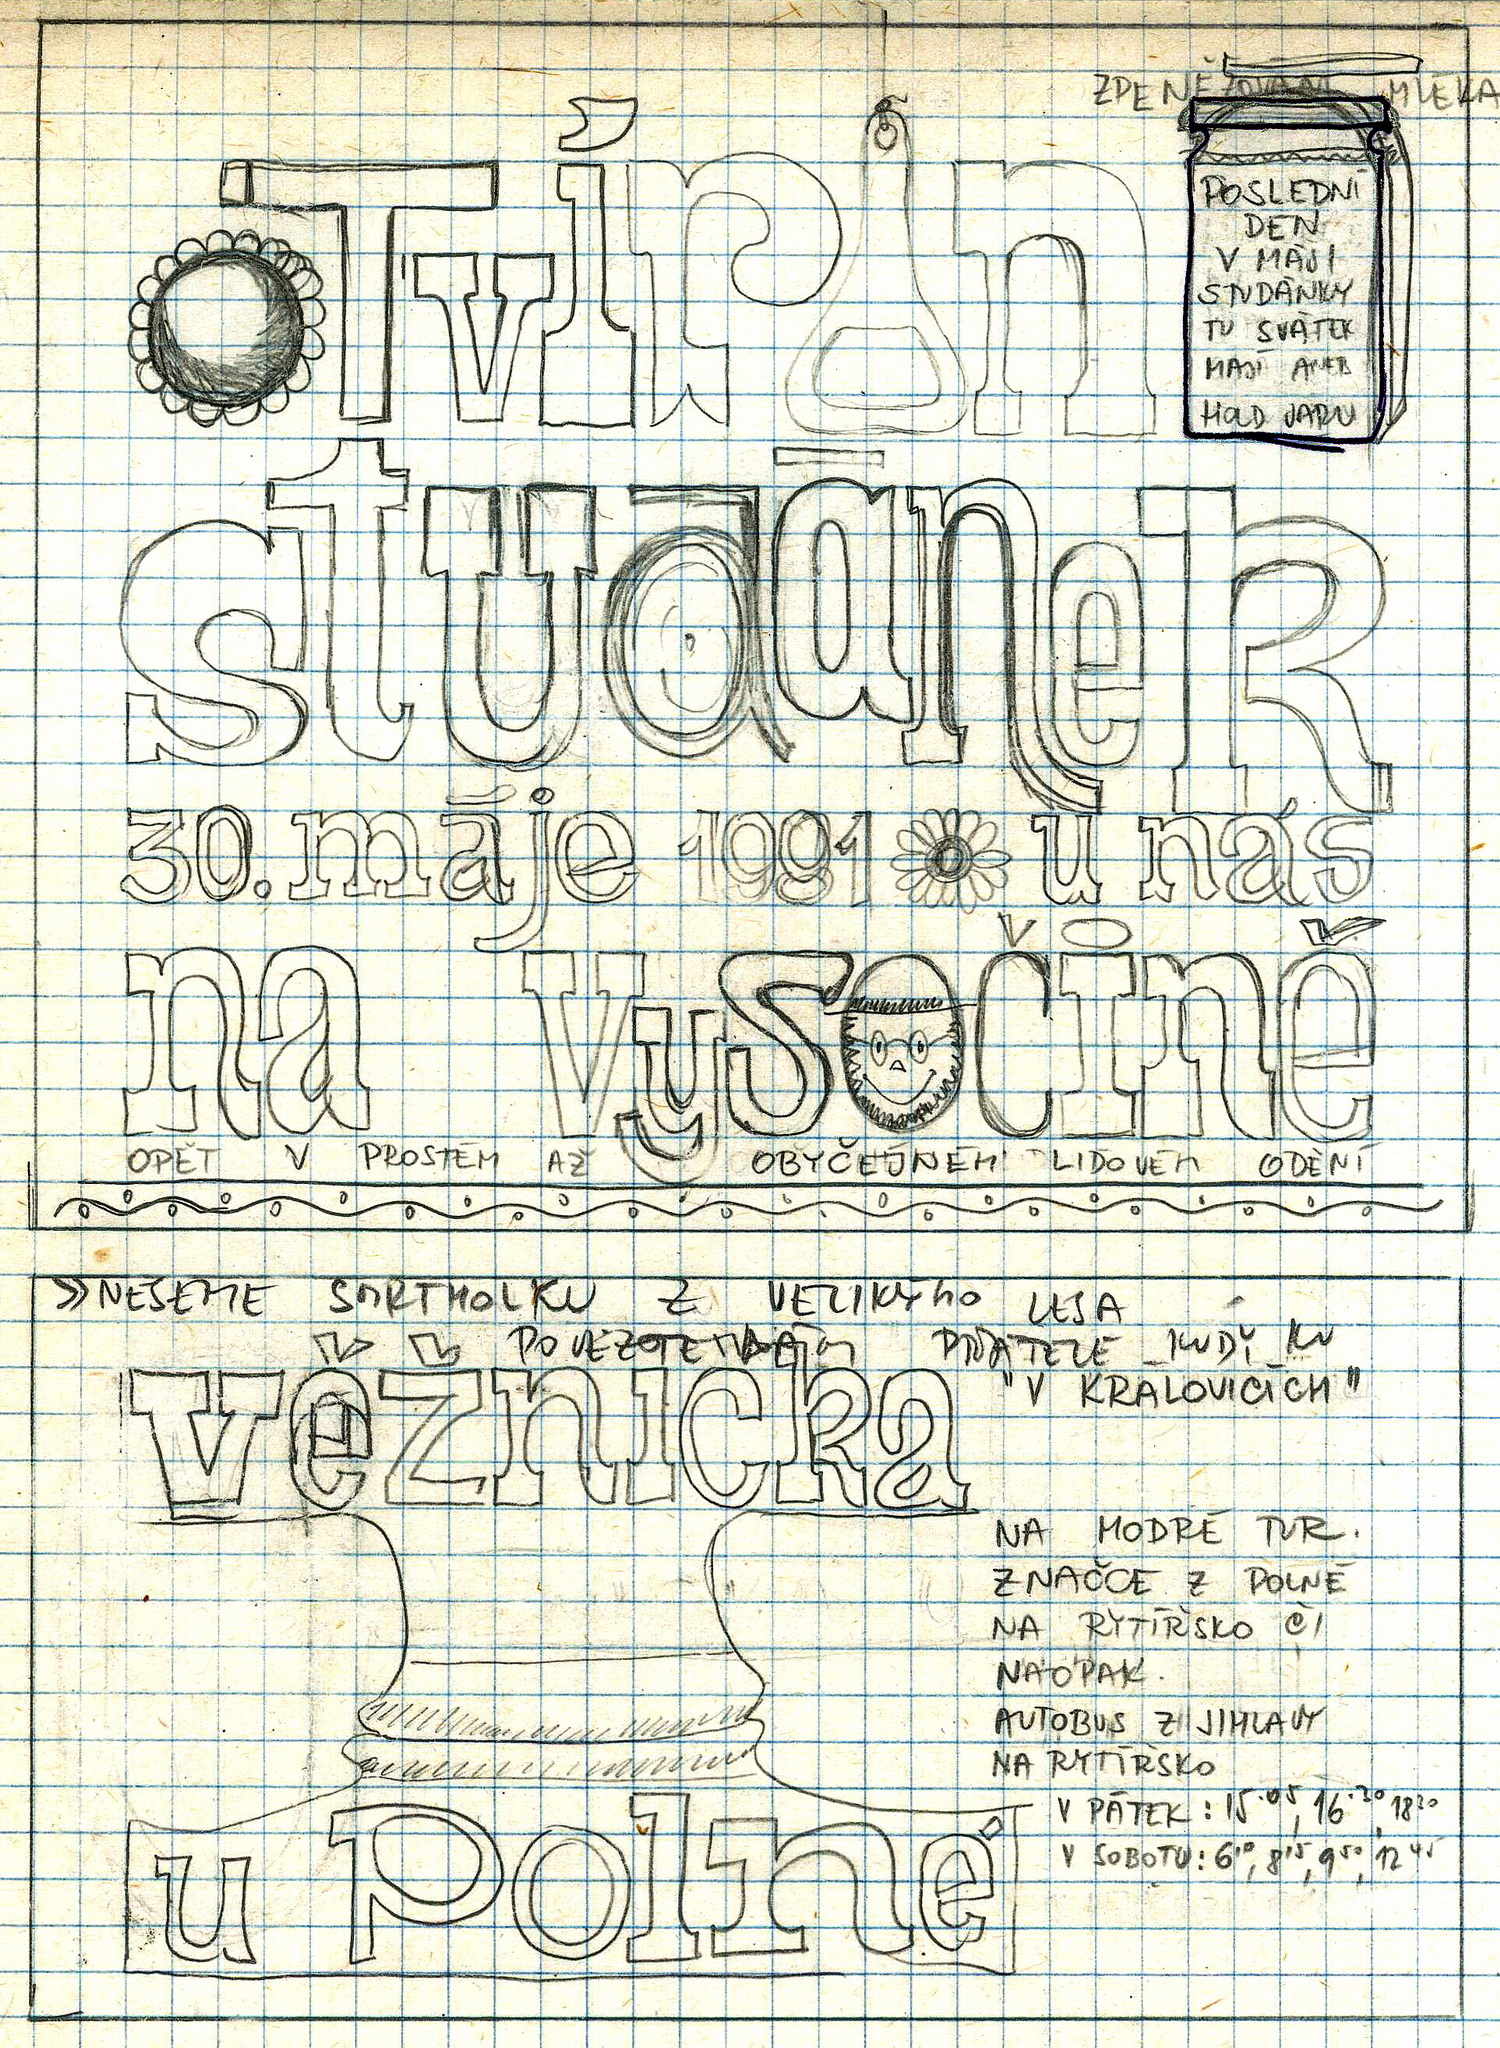 ZPENĚŽOVÁNÍ MLÉKA
OTVÍRÁNÍ
POSLEDNÍ
DEN
V MÁJI
STUDÁNKY
TU SVÁTEK
MAJÍ ANEB
HOLD JARU
studánek
30. máje 1991 u nás
na vysočině
OPĚT V PROSTÉM AŽ OBYČEJNÉM LIDOVÉM ODĚNÍ
»NESEME SMRTHOLKU Z VELIKÝHO LESA
PŘÁTELÉ KUDÍ KU
věžnička
"V KRALOVICÍCH"
NA MODRÉ TUR.
ZNAČCE Z POLNÉ
NA RYTÍŘSKO ČI
NAOPAK.
AUTOBUS Z JIHLAVY
NA RYTÍŘSKO
V PÁTEK: 15.05, 16.30, 18 30
V SOBOTU: 6 10, 8 15, 9 50, 12 45
u Polné